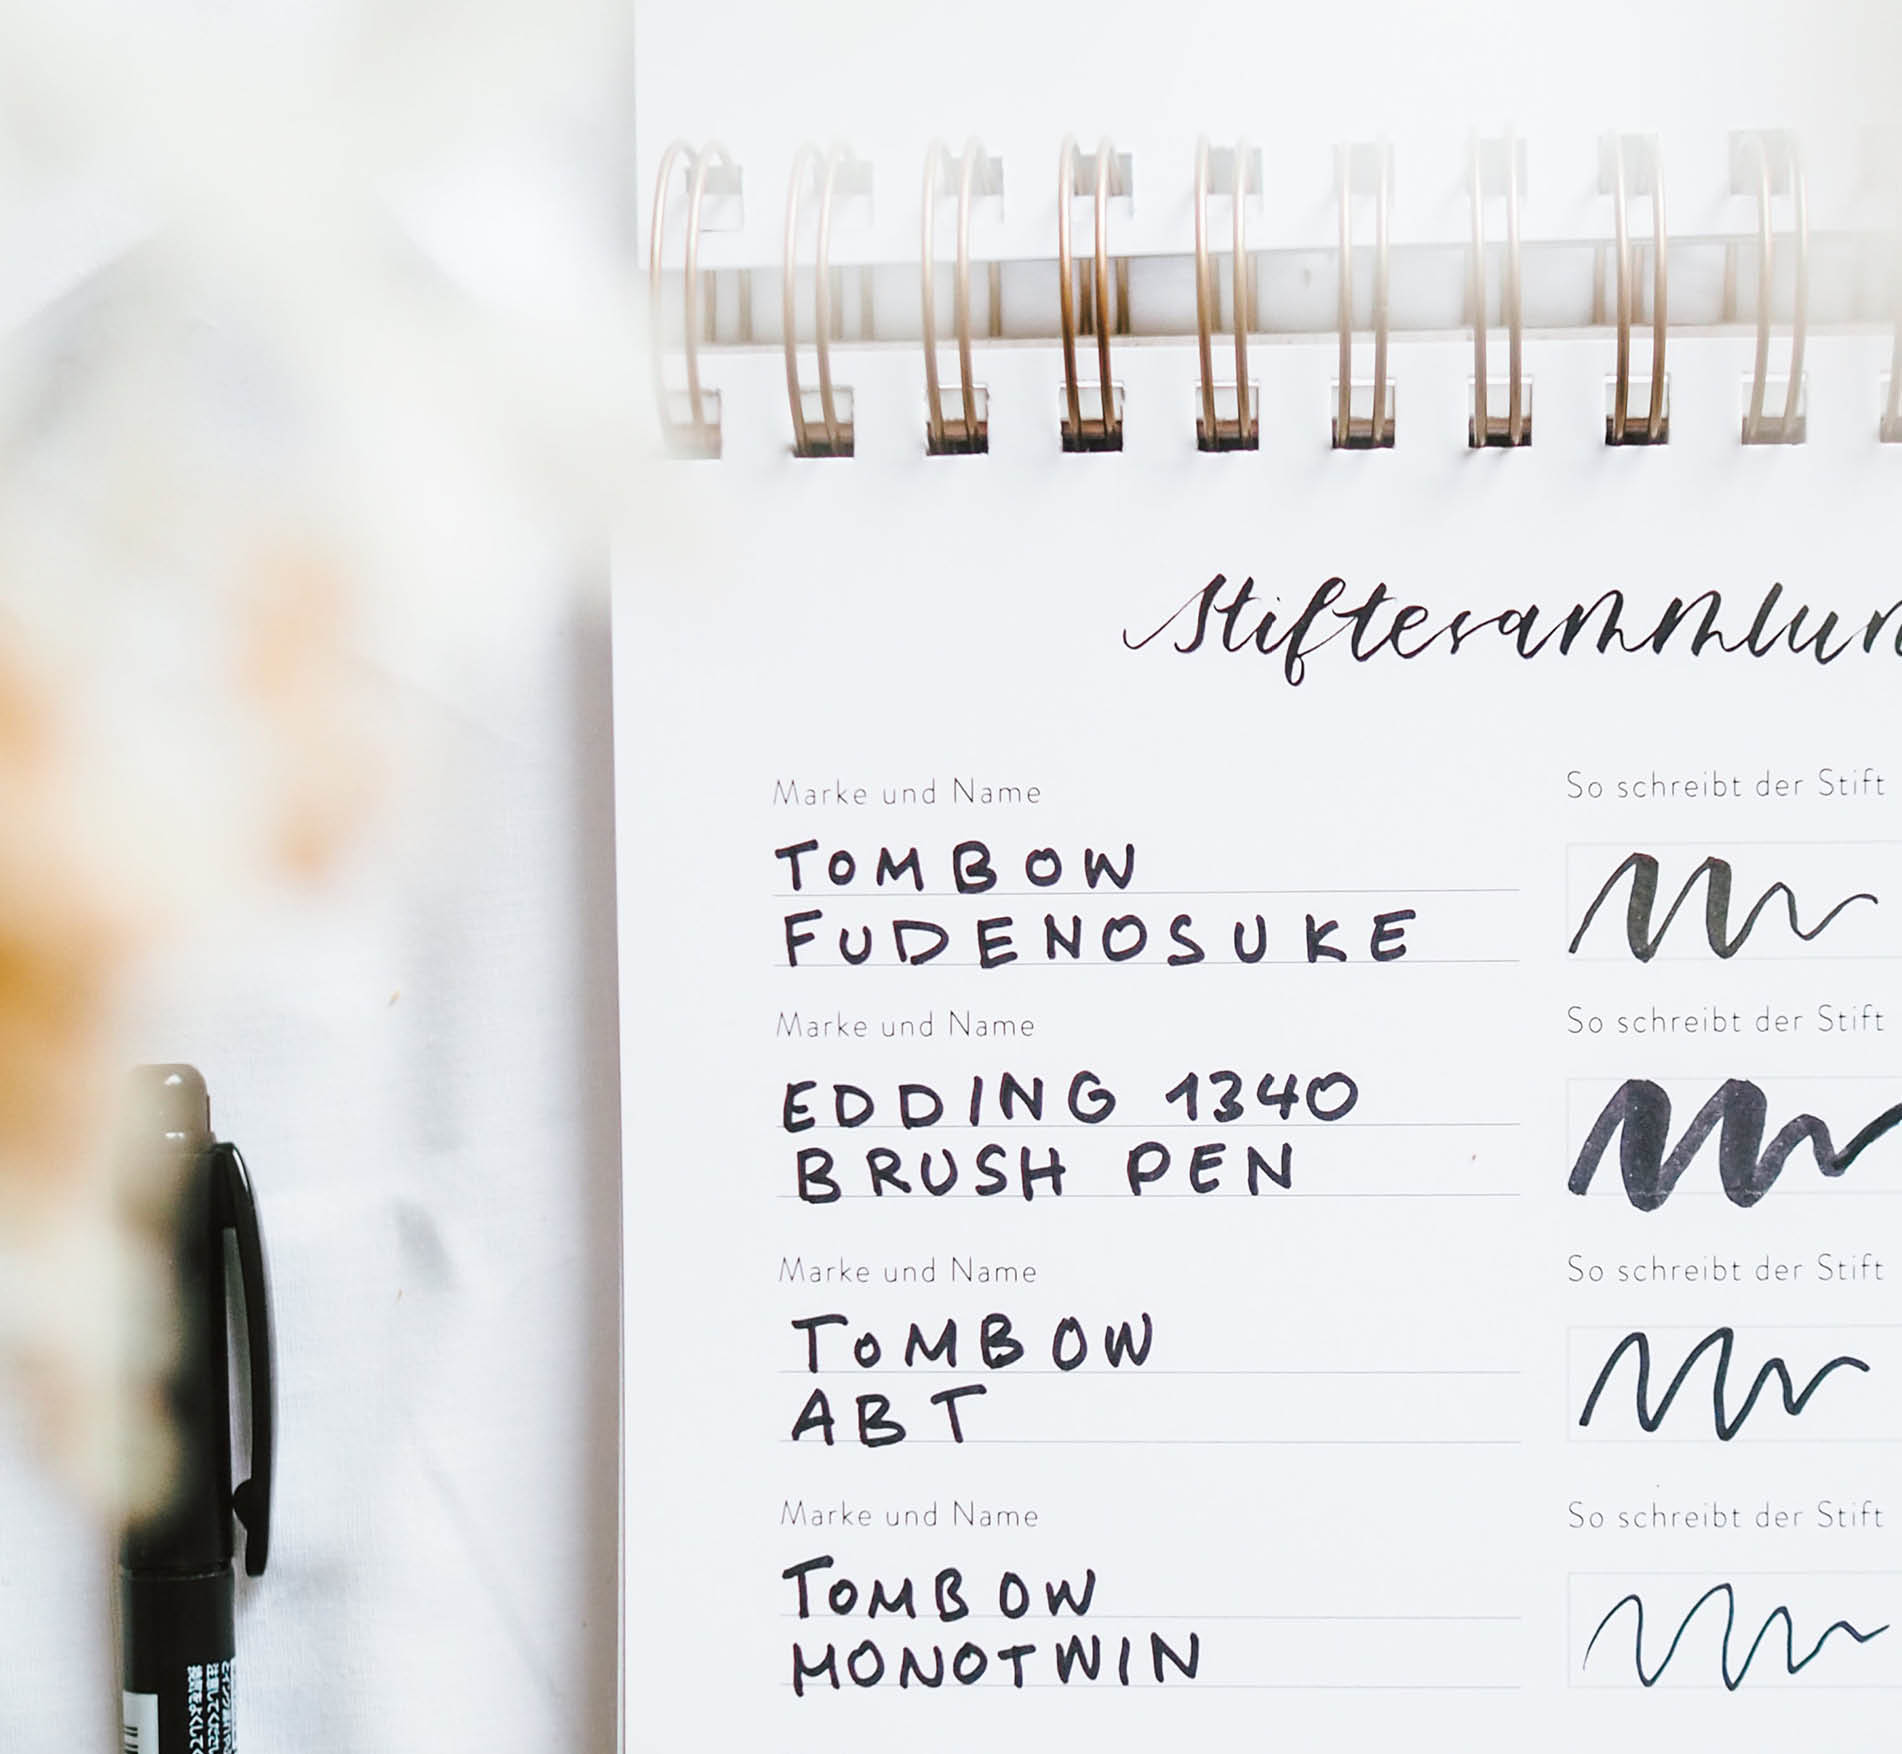 Stiftesammlun
Marke und Name
So schreibt der Stift
TOMBOW
FUDENOSUKE
Marke und Name
So schreibt der Stift
EDDING 1340
BRUSH PEN
Marke und Name
So schreibt der Stift
TOMBOW
ABT
Marke und Name
So schreibt der Stift
TOMBOW
MONOTWIN